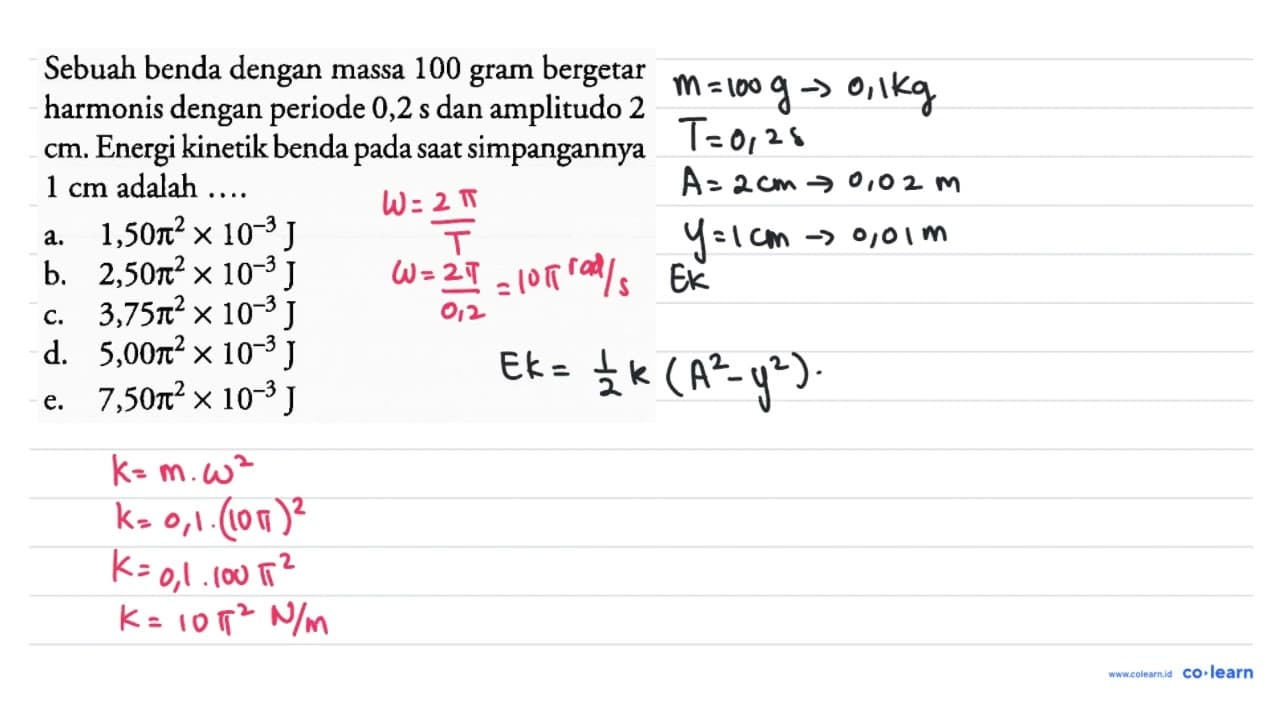 Sebuah benda dengan massa 100 gram bergetar
harmonis dengan periode 0,2 s dan amplitudo 2
cm. Energi kinetik benda pada saat simpangannya
1 cm adalah ....
a. 1,50π² × 10⁻³ J
b. 2,50π² × 10⁻³ J
c. 3,75π² × 10⁻³ J
d. 5,00π² × 10⁻³ J
e. 7,50π² × 10⁻³ J
m = 100 g → 0,1 kg
T = 0,2 s
A = 2 cm → 0,02 m
y = 1 cm → 0,01 m
Ek
ω = 2π/T
ω = 2π/0,2 = 10π rad/s
Ek = 1/2 k (A² - y²).
k = m . ω²
k = 0,1 . (10π)²
k = 0,1 . 100 π²
k = 10 π² N/m
www.colearn.id co·learn